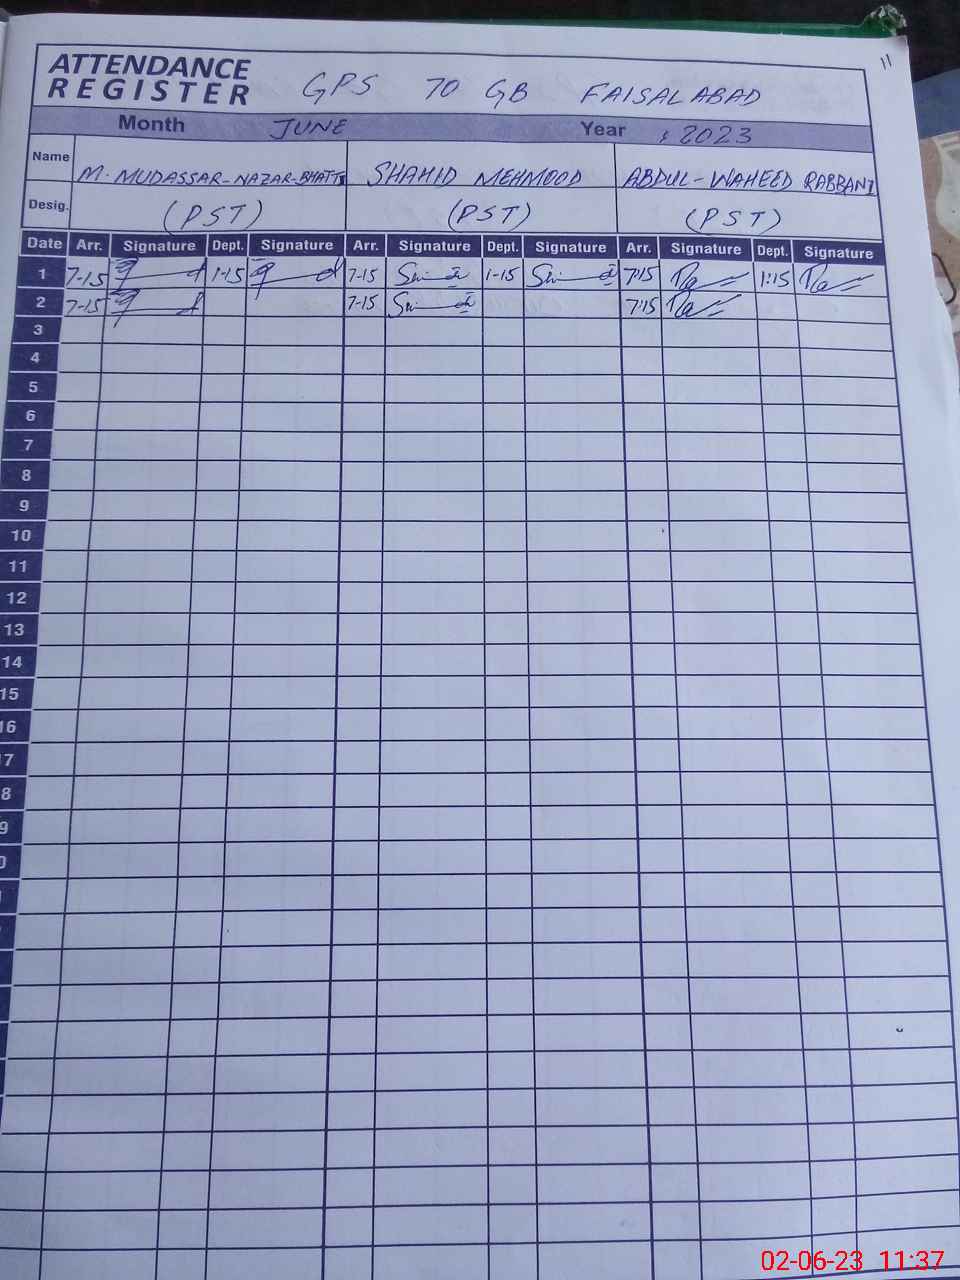 11
ATTENDANCE REGISTER GPS 70 GB FAISALABAD
Month JUNE Year 2023
Name M. MUDASSAR-NAZAR-BHATTI SHAHID MEHMOOD ABDUL-WAHEED RABBANI
Desig. (PST) (PST) (PST)
Date Arr. Signature Dept. Signature Arr. Signature Dept. Signature Arr. Signature Dept. Signature
1 7-15 1-15 7-15 1-15 7:15 1:15
2 7-15 7-15 7:15
3
4
5
6
7
8
9
10
11
12
13
14
15
16
7
8
9
0
02-06-23 11:37